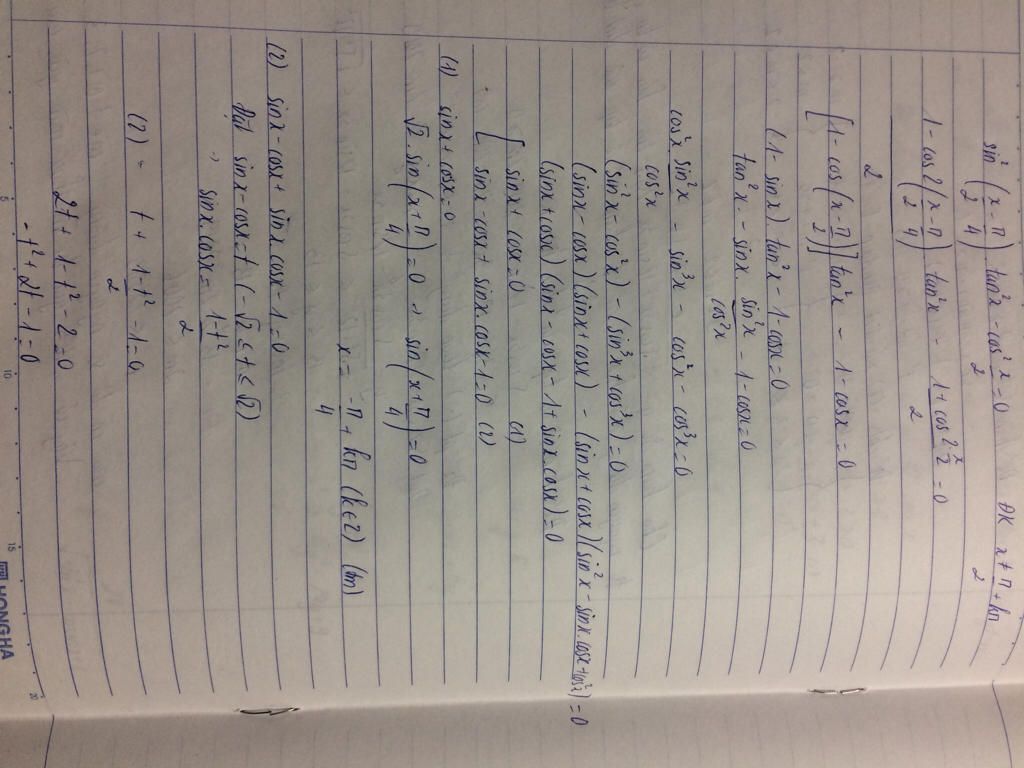 sin²(x/2 - π/4) tan²x - cos² x/2 = 0    ĐK x ≠ π/2 + kπ
(1 - cos2(x/2 - π/4))/2 tan²x - (1 + cos2 x/2)/2 = 0
[1 - cos(x - π/2)] tan²x - 1 - cosx = 0
(1 - sinx) tan²x - 1 - cosx = 0
tan²x - sinx sin²x/cos²x - 1 - cosx = 0
cos²x sin²x/cos²x - sin³x - cos²x - cos³x = 0
(sin²x - cos²x) - (sin³x + cos³x) = 0
(sinx - cosx)(sinx + cosx) - (sinx + cosx)(sin²x - sinx.cosx + cos²x) = 0
(sinx + cosx)(sinx - cosx - 1 + sinx cosx) = 0
[ sinx + cosx = 0 (1)
sinx - cosx + sinx cosx - 1 = 0 (2)
(1) sinx + cosx = 0
√2. sin(x + π/4) = 0 → sin(x + π/4) = 0
x = -π/4 + kπ (k∈Z) (tm)
(2) sinx - cosx + sinx cosx - 1 = 0
Đặt sinx - cosx = t (-√2 ≤ t ≤ √2)
→ sinx.cosx = (1 - t²)/2
(2) ~ t + (1 - t²)/2 - 1 = 0
2t + 1 - t² - 2 = 0
-t² + 2t - 1 = 0
5 10 15 20
HONG HA